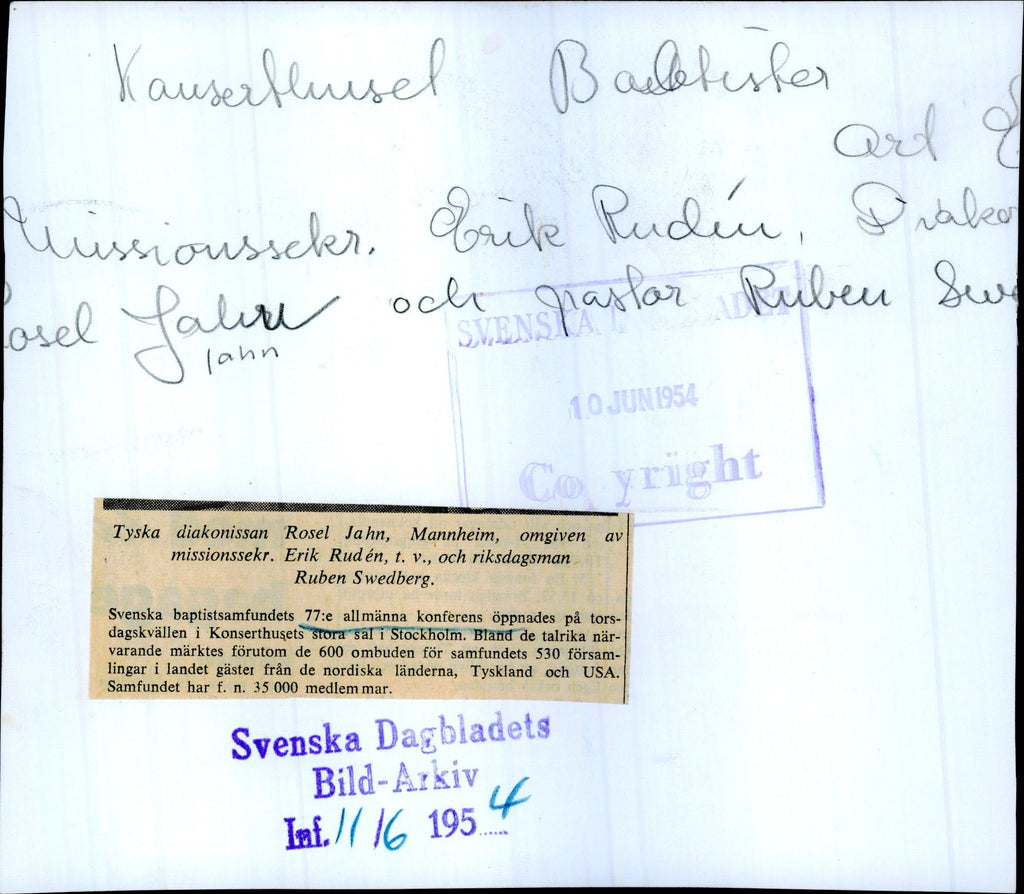 Konserthuset Baptister
art
Missionssekr. Erik Rudén,
Rosel Jahn och pastor Ruben
Jahn
SVENSKA DAGBLADET
10 JUN 1954
Co yright
Tyska diakonissan Rosel Jahn, Mannheim, omgiven av
missionssekr. Erik Rudén, t. v., och riksdagsman
Ruben Swedberg.
Svenska baptistsamfundets 77:e allmänna konferens öppnades på tors-
dagskvällen i Konserthusets stora sal i Stockholm. Bland de talrika när-
varande märktes förutom de 600 ombuden för samfundets 530 försam-
lingar i landet gäster från de nordiska länderna, Tyskland och USA.
Samfundet har f. n. 35 000 medlemmar.
Svenska Dagbladets
Bild-Arkiv
Inf. 11/6 1954